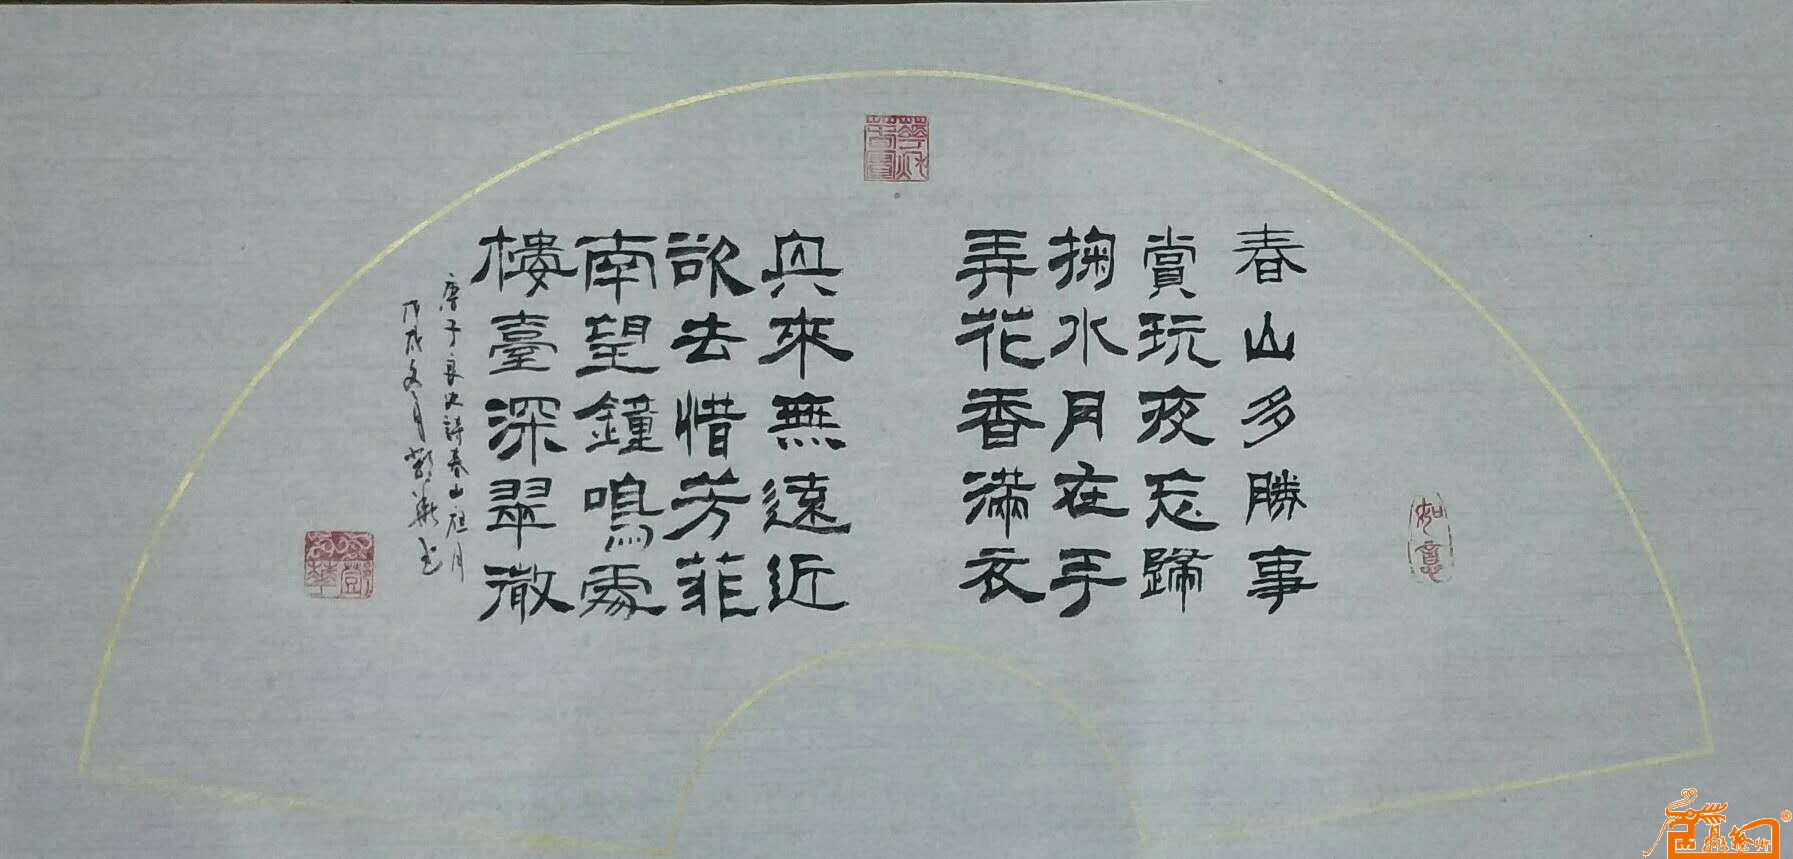 春山多勝事
賞玩夜忘歸
掬水月在手
弄花香滿衣
興來無遠近
欲去惜芳菲
南望鐘鳴處
樓臺深翠微
唐于良史詩春山夜月
戊戌冬月
如意